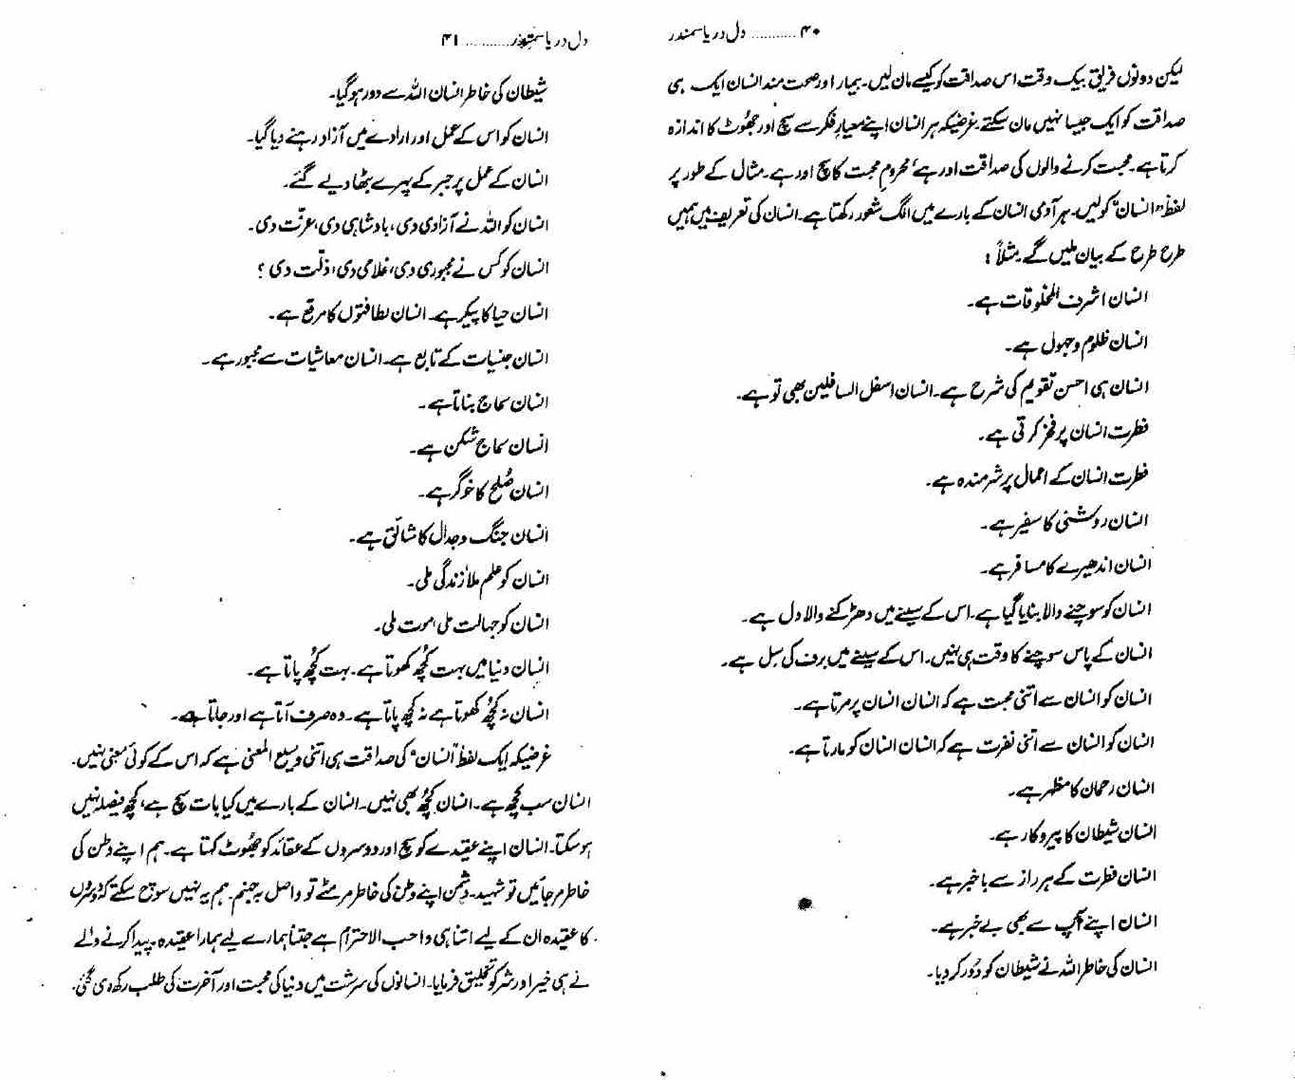 ۴۰ ........... دل دریا سمندر
لیکن دونوں فریق بیک وقت اس صداقت کو کیسے مان لیں۔ بیمار اور صحت مند انسان ایک ہی
صداقت کو ایک جیسا نہیں مان سکتے۔ غرضیکہ ہر انسان اپنے معیارِ فکر سے سچ اور جھوٹ کا اندازہ
کرتا ہے۔ محبت کرنے والوں کی صداقت اور ہے، محرومِ محبت کا سچ اور ہے۔ مثال کے طور پر
لفظ "انسان" کو لیں۔ ہر آدمی انسان کے بارے میں الگ شعور رکھتا ہے۔ انسان کی تعریف میں ہمیں
طرح طرح کے بیان ملیں گے۔ مثلاً :
انسان اشرف المخلوقات ہے۔
انسان ظلوم و جہول ہے۔
انسان ہی احسن تقویم کی شرح ہے۔ انسان اسفل السافلین بھی تو ہے۔
فطرت انسان پر فخر کرتی ہے۔
فطرت انسان کے اعمال پر شرمندہ ہے۔
انسان روشنی کا سفیر ہے۔
انسان اندھیرے کا مسافر ہے۔
انسان کو سوچنے والا بنایا گیا ہے۔ اس کے سینے میں دھڑکنے والا دل ہے۔
انسان کے پاس سوچنے کا وقت ہی نہیں۔ اس کے سینے میں برف کی سِل ہے۔
انسان کو انسان سے اتنی محبت ہے کہ انسان انسان پر مرتا ہے۔
انسان کو انسان سے اتنی نفرت ہے کہ انسان انسان کو مارتا ہے۔
انسان رحمان کا مظہر ہے۔
انسان شیطان کا پیروکار ہے۔
انسان فطرت کے ہر راز سے باخبر ہے۔
انسان اپنے آپ سے بھی بے خبر ہے۔
انسان کی خاطر اللہ نے شیطان کو دُور کر دیا۔
دل دریا سمندر ........... ۴۱
شیطان کی خاطر انسان اللہ سے دور ہو گیا۔
انسان کو اس کے عمل اور ارادے میں آزاد رہنے دیا گیا۔
انسان کے عمل پر جبر کے پہرے بٹھا دیے گئے۔
انسان کو اللہ نے آزادی دی، بادشاہی دی، عزّت دی۔
انسان کو کس نے مجبوری دی، غلامی دی، ذلّت دی ؟
انسان حیا کا پیکر ہے۔ انسان لطافتوں کا مرقع ہے۔
انسان جنسیات کے تابع ہے۔ انسان معاشیات سے مجبور ہے۔
انسان سماج بناتا ہے۔
انسان سماج شکن ہے۔
انسان صُلح کا خوگر ہے۔
انسان جنگ و جدال کا شائق ہے۔
انسان کو علم ملا، زندگی ملی۔
انسان کو جہالت ملی، موت ملی۔
انسان دنیا میں بہت کُچھ کھوتا ہے۔ بہت کُچھ پاتا ہے۔
انسان نہ کُچھ کھوتا ہے نہ کُچھ پاتا ہے۔ وہ صرف آتا ہے اور جاتا ہے۔
غرضیکہ ایک لفظ "انسان" کی صداقت ہی اتنی وسیع المعنی ہے کہ اس کے کوئی معنی نہیں۔
انسان سب کُچھ ہے۔ انسان کُچھ بھی نہیں۔ انسان کے بارے میں کیا بات سچ ہے، کُچھ فیصلہ نہیں
ہو سکتا۔ انسان اپنے عقیدے کو سچ اور دوسروں کے عقائد کو جھُوٹ کہتا ہے۔ ہم اپنے وطن کی
خاطر مر جائیں تو شہید۔ دشمن اپنے وطن کی خاطر مر مٹے تو واصل بہ جہنم۔ ہم یہ نہیں سوچ سکتے کہ دوسروں
کا عقیدہ ان کے لیے اتنا ہی واجب الاحترام ہے جتنا ہمارے لیے ہمارا عقیدہ۔ پیدا کرنے والے
نے ہی خیر اور شر کو تخلیق فرمایا۔ انسانوں کی سرشت میں دنیا کی محبت اور آخرت کی طلب رکھ دی گئی۔